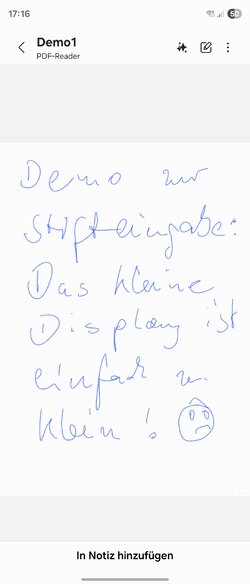 17:16
50
Demo1
PDF-Reader
Demo zur
Stifteingabe:
Das kleine
Display ist
einfach zu
klein!
In Notiz hinzufügen